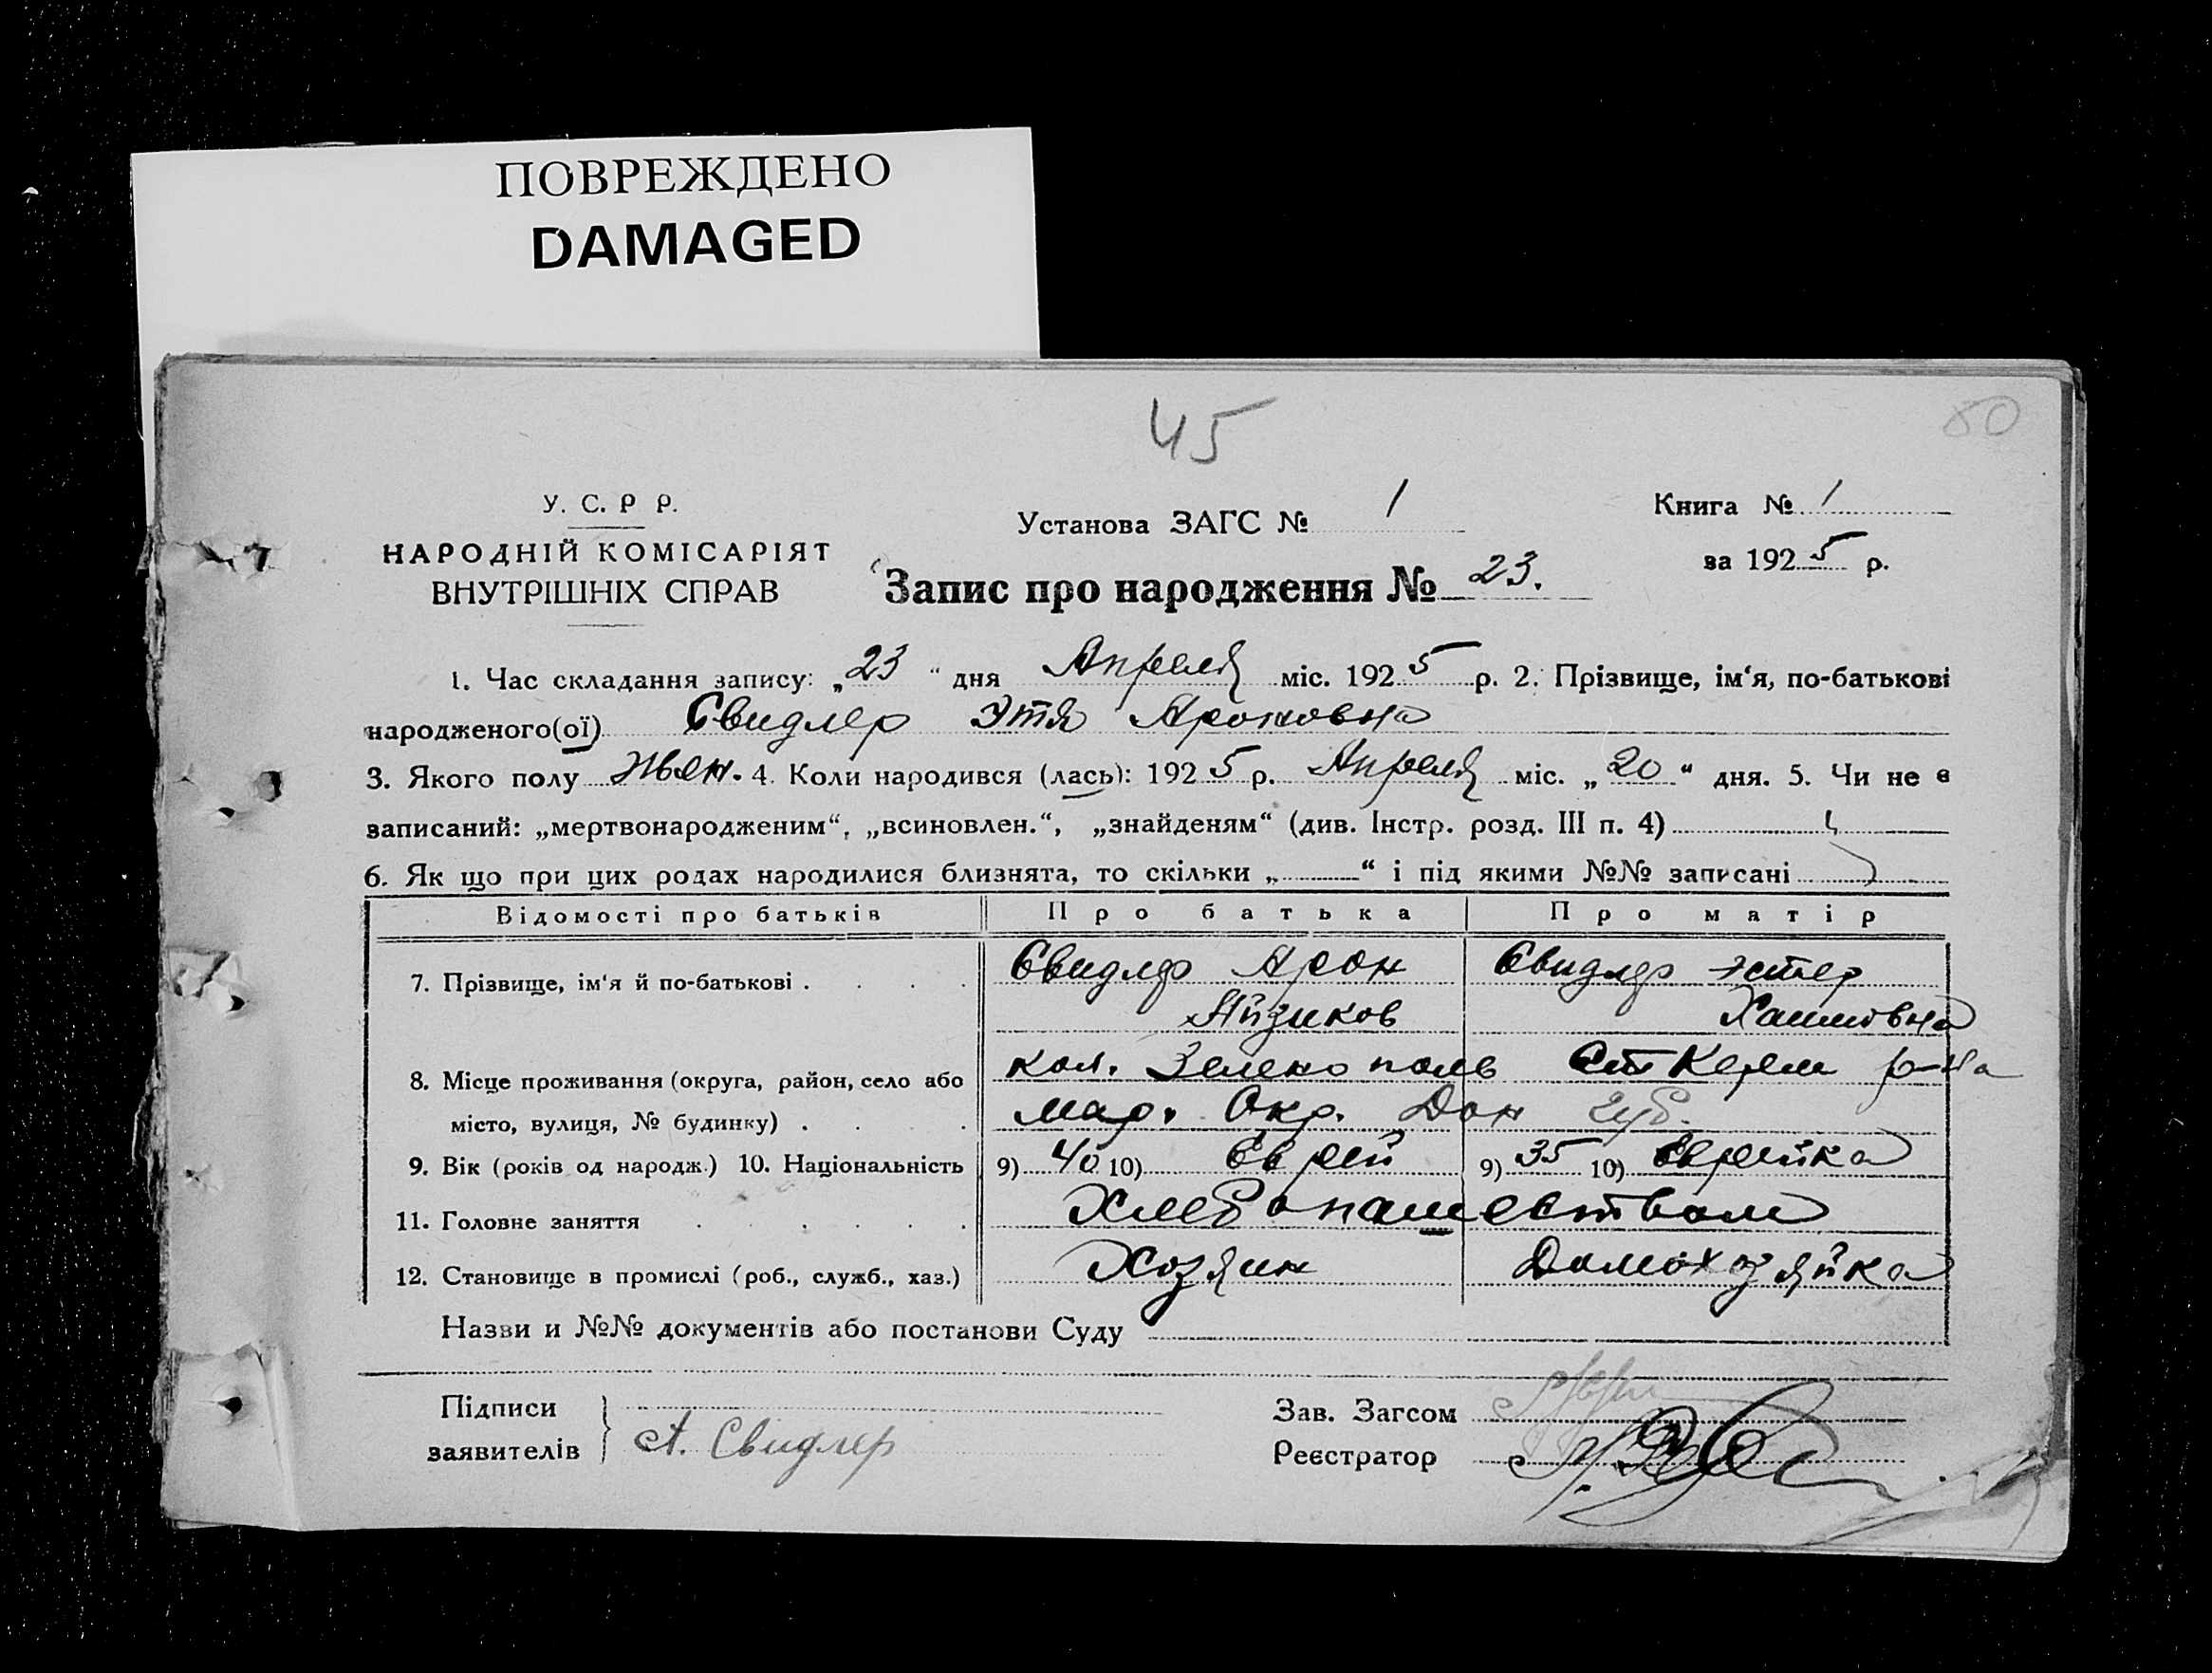 ПОВРЕЖДЕНО
DAMAGED
45
80
У. С. Р Р.
НАРОДНІЙ КОМІСАРІЯТ
ВНУТРІШНІХ СПРАВ
Установа ЗАГС № 1
Книга № 1
за 1925 р.
Запис про народження № 23.
1. Час складання запису: „23“ дня Апреля міс. 1925 р. 2. Прізвище, ім‘я, по-батькові
народженого(ої) Свидлер Этя Ароновна
3. Якого полу Жен. 4. Коли народився (лась): 1925 р. Апреля міс. „20“ дня. 5. Чи не є
записаний: „мертвонародженим“, „всиновлен.“, „знайденям“ (див. Інстр. розд. III п. 4)
6. Як що при цих родах народилися близнята, то скільки „ “ і під якими №№ записані
Відомості про батьків Про батька Про матір
7. Прізвище, ім‘я й по-батькові . . . . Свидлер Арон Свидлер Эстер
Айзиков Хаимовна
8. Місце проживання (округа, район, село або кол. Зеленополь Ст Керем р-на
місто, вулиця, № будинку) . . . Мар. Окр. Дон Губ.
9. Вік (років од народж.) 10. Національність 9) 40 10) Еврей 9) 35 10) Еврейка
11. Головне заняття . . . . . . Хлебопашеством
12. Становище в промислі (роб., служб., хаз.) Хозяин Домохозяйка
Назви и №№ документів або постанови Суду
Підписи
заявителів } А. Свидлер
Зав. Загсом
Реєстратор